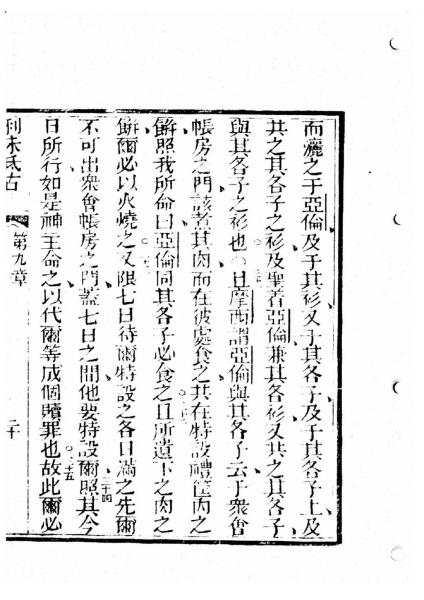 而灑之于亞倫及于其衫又于其各子及于其各子上及
共之其各子之衫及聖着亞倫兼其各衫又共之其各子
與其各子之衫也○且摩西謂亞倫與其各子云于衆會
帳房之門該煮其肉而在彼處食之共在特設禮筐內之
餅照我所命曰亞倫同其各子必食之且所遺下之肉之
餅爾必以火燒之又限七日待爾特設之各日滿之先爾
不可出衆會帳房之門蓋七日之間他要特設爾照其今
日所行如是神主命之以代爾等成個贖罪也故此爾必
利未氏古 第九章 二十